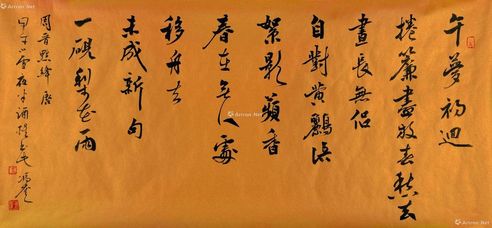 午夢初迴
捲簾盡放春愁去
晝長無侶
自對黄鸝語
絮影蘋香
春在無人處
移舟去
未成新句
一硯梨花雨
周晉點絳唇
甲午小雪夜半酒醒